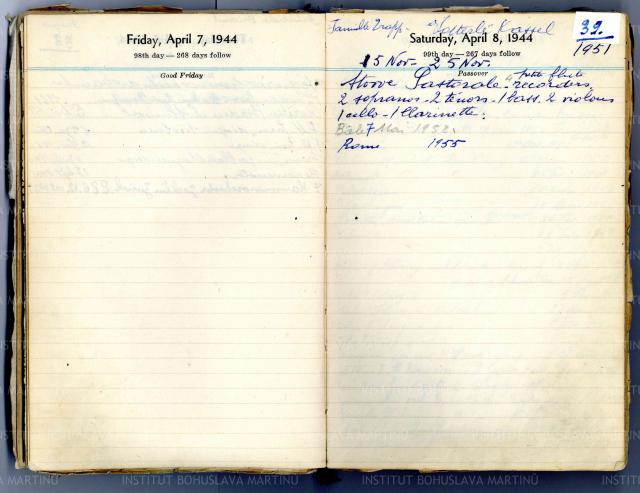 Friday, April 7, 1944
98th day — 268 days follow
Good Friday
Famille Trapp
Kassel
39.
1951
Saturday, April 8, 1944
99th day — 267 days follow
15 Nov - 25 Nov.
Passover
petite flute
Stowe Pastorale - recorders,
2 sopranos - 2 tenors - 1 bass. 2 violons
1 cello - 1 Clarinette.
Bâle 7 Mai 1952.
Rome 1955
INSTITUT BOHUSLAVA MARTINŮ
INSTITUT BOHUSLAVA MARTINŮ